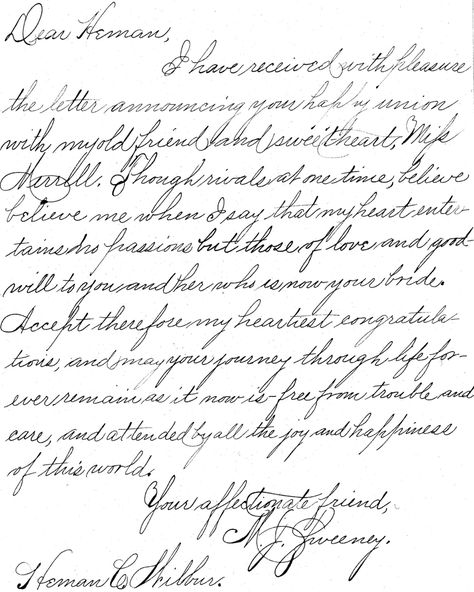 Dear Heman,
I have received with pleasure
the letter announcing your happy union
with my old friend and sweetheart, Miss
Harrell. Though rivals at one time, believe
believe me when I say that my heart enter-
tains no passions but those of love and good-
will to you and her who is now your bride.
Accept therefore my heartiest congratula-
tions, and may your journey through life for-
ever remain as it now is - free from trouble and
care, and attended by all the joy and happiness
of this world.
Your affectionate friend,
M. J. Sweeney.
Heman C. Wilbur.